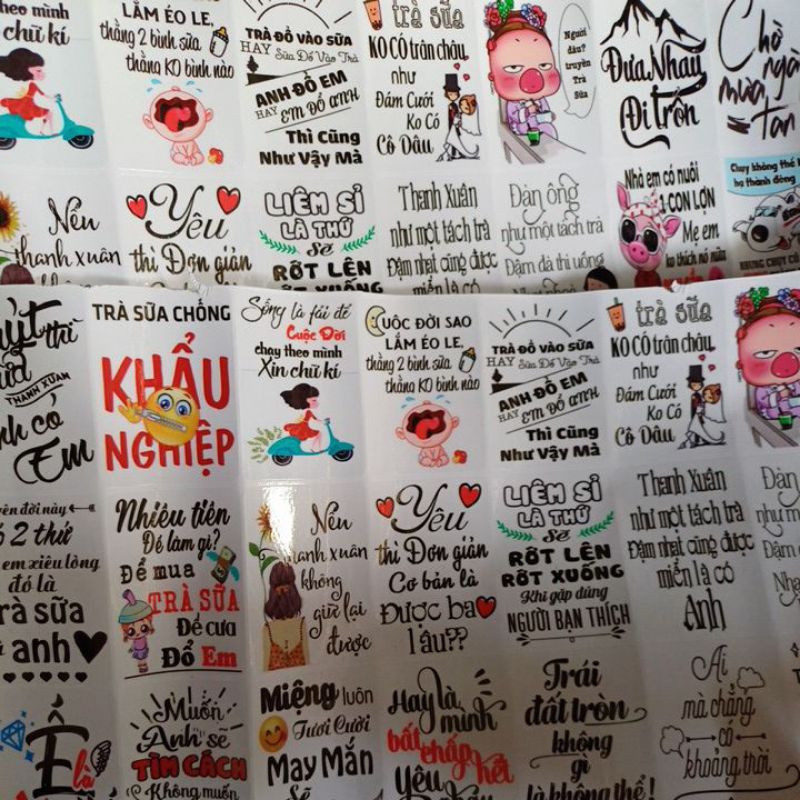 theo mình
chữ kí
LẮM ÉO LE,
thằng 2 bình sữa
thằng KO bình nào
TRÀ ĐỔ VÀO SỮA
HAY Sữa Đổ Vào Trà
ANH ĐỔ EM
HAY EM ĐỔ ANH
Thì Cũng
Như Vậy Mà
trà sữa
KO CÓ trân châu,
như
Đám Cưới
Ko Có
Cô Dâu
Người
đâu?
truyền
Trà
Sữa
Đưa Nhau
Đi Trốn
Chờ
ngày
mưa
tan
Nếu
thanh xuân
Yêu
thì Đơn giản
LIÊM SỈ
LÀ THỨ
SẼ
RỚT LÊN
RỚT XUỐNG
Thanh Xuân
như một tách trà
Đậm nhạt cũng được
miễn là có
Đàn ông
như một tách trà
Đậm đà thì uống
Nhà em có nuôi
1 CON LỢN
Mẹ em
ko thích nó nữa
Chạy không thể
hạ thành đông
thì
THANH XUÂN
có
Em
TRÀ SỮA CHỐNG
KHẨU
NGHIỆP
Sống là fải để
Cuộc Đời
chạy theo mình
Xin chữ kí
CUỘC ĐỜI SAO
LẮM ÉO LE,
thằng 2 bình sữa
thằng KO bình nào
TRÀ ĐỔ VÀO SỮA
HAY Sữa Đổ Vào Trà
ANH ĐỔ EM
HAY EM ĐỔ ANH
Thì Cũng
Như Vậy Mà
trà sữa
KO CÓ trân châu,
như
Đám Cưới
Ko Có
Cô Dâu
đời này
2 thứ
em xiêu lòng
đó là
trà sữa
anh
Nhiều tiền
Để làm gì?
Để mua
TRÀ SỮA
Để cưa
ĐỔ Em
Nếu
thanh xuân
không
giữ lại
được
Yêu
thì Đơn giản
Cơ bản là
Được bao
lâu??
LIÊM SỈ
LÀ THỨ
SẼ
RỚT LÊN
RỚT XUỐNG
Khi gặp đúng
NGƯỜI BẠN THÍCH
Thanh Xuân
như một tách trà
Đậm nhạt cũng được
miễn là có
Anh
Đàn
như m
Đậm
Ế
là
Muốn
Anh sẽ
TÌM CÁCH
Không muốn
Miệng luôn
Tươi Cười
May Mắn
Sẽ
Hay là
mình
bất chấp
hết
Yêu
Trái
đất tròn
không
gì
là không thể!
Ai
mà chẳng
có
khoảng trời